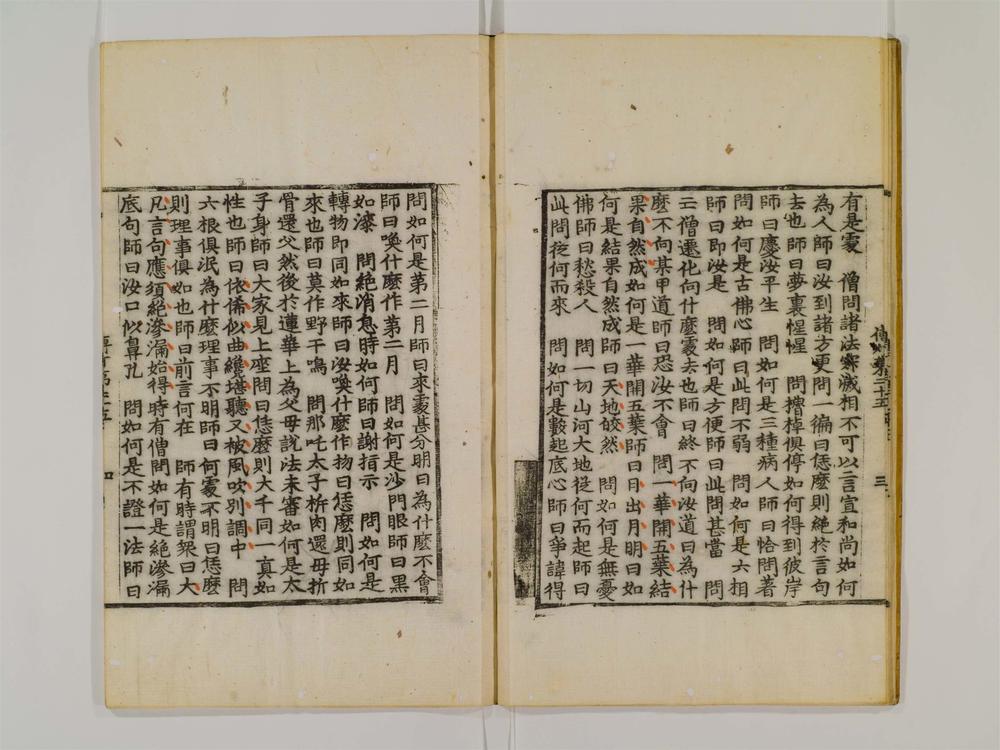 有是處　僧問諸法寂滅相不可以言宣和尚如何
為人師曰汝到諸方更問一徧曰恁麼則絶於言句
去也師曰夢裏惺惺　問櫓棹俱停如何得到彼岸
師曰慶汝平生　問如何是三種病人師曰恰問著
問如何是古佛心師曰此問不弱　問如何是六相
師曰即汝是　問如何是方便師曰此問甚當　問
亡僧遷化向什麼處去也師曰終不向汝道曰為什
麼不向某甲道師曰恐汝不會　問一華開五葉結
果自然成如何是一華開五葉師曰日出月明曰如
何是結果自然成師曰天地皎然　問如何是無憂
佛師曰愁殺人　問一切山河大地從何而起師曰
此問從何而來　問如何是數起底心師曰爭諱得
三
問如何是第二月師曰來處甚分明曰為什麼不會
師曰喚什麼作第二月　問如何是沙門眼師曰黑
如漆　問絶消息時如何師曰謝指示　問如何是
轉物即同如來師曰汝喚什麼作物曰恁麼則同如
來也師曰莫作野干鳴　問那吒太子析肉還母析
骨還父然後於蓮華上為父母說法未審如何是太
子身師曰大家見上座問曰恁麼則大千同一真如
性也師曰依俙似曲纔堪聽又被風吹別調中　問
六根俱泯為什麼理事不明師曰何處不明曰恁麼
則理事俱如也師曰前言何在　師有時謂衆曰大
凡言句應須絶滲漏始得時有僧問如何是絶滲漏
底句師曰汝口似鼻孔　問如何是不證一法師曰